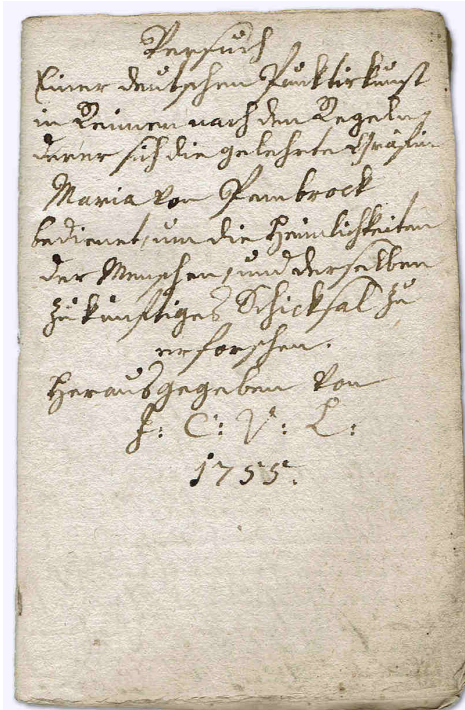 Versuch
Einer deutschen Punktirkunst
in Reimen nach den Regeln,
derer sich die gelehrte Gräfin
Maria von Pembrock
bedienet, um die Heimlichkeiten
der Menschen, und derselben
zukünftiges Schicksal zu
erforschen.
Herausgegeben von
J: C: V: L:
1755.